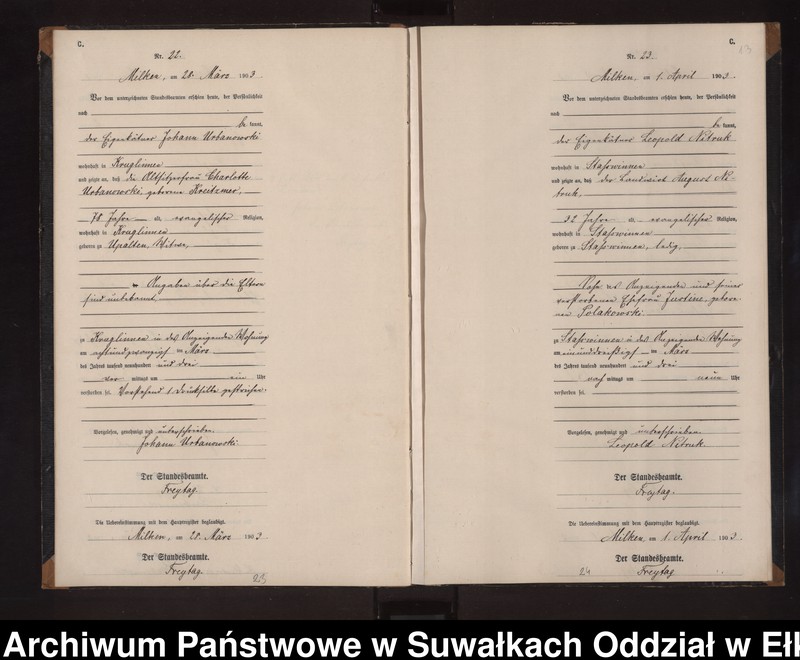 C.
Nr. 22.
Milken, am 28. März 1903.
Vor dem unterzeichneten Standesbeamten erschien heute, der Persönlichkeit
nach
be kannt,
der Eigenkätner Johann Urbanowski
wohnhaft in Kruglinnen
und zeigte an, daß die Altsitzerfrau Charlotte
Urbanowski, geborene Kreutzmer,
78 Jahre alt, evangelischer Religion,
wohnhaft in Kruglinnen
geboren zu Upalten, Witwe,
Angaben über die Eltern
sind unbekannt,
zu Kruglinnen in des Anzeigenden Wohnung
am achtundzwanzigsten März
des Jahres tausend neunhundert und drei
vor mittags um ein Uhr
verstorben sei. Vorstehend 1 Drucksilbe gestrichen.
Vorgelesen, genehmigt und unterschrieben.
Johann Urbanowski.
Der Standesbeamte.
Freytag.
Die Uebereinstimmung mit dem Hauptregister beglaubigt.
Milken, am 28. März 1903.
Der Standesbeamte.
Freytag.
C.
13
Nr. 23.
Milken, am 1. April 1903.
Vor dem unterzeichneten Standesbeamten erschien heute, der Persönlichkeit
nach
be kannt,
der Eigenkätner Leopold Nitruk
wohnhaft in Staßwinnen
und zeigte an, daß der Landwirt August Ni-
truk,
32 Jahre alt, evangelischer Religion,
wohnhaft in Staßwinnen
geboren zu Staßwinnen, ledig,
Sohn des Anzeigenden und seiner
verstorbenen Ehefrau Justine, gebore-
nen Polakowski
zu Staßwinnen in des Anzeigenden Wohnung
am einunddreißigsten März
des Jahres tausend neunhundert und drei
nach mittags um neun Uhr
verstorben sei.
Vorgelesen, genehmigt und unterschrieben.
Leopold Nitruk.
Der Standesbeamte.
Freytag.
Die Uebereinstimmung mit dem Hauptregister beglaubigt.
Milken, am 1. April 1903.
Der Standesbeamte.
24 Freytag
Archiwum Państwowe w Suwałkach Oddział w Ełk